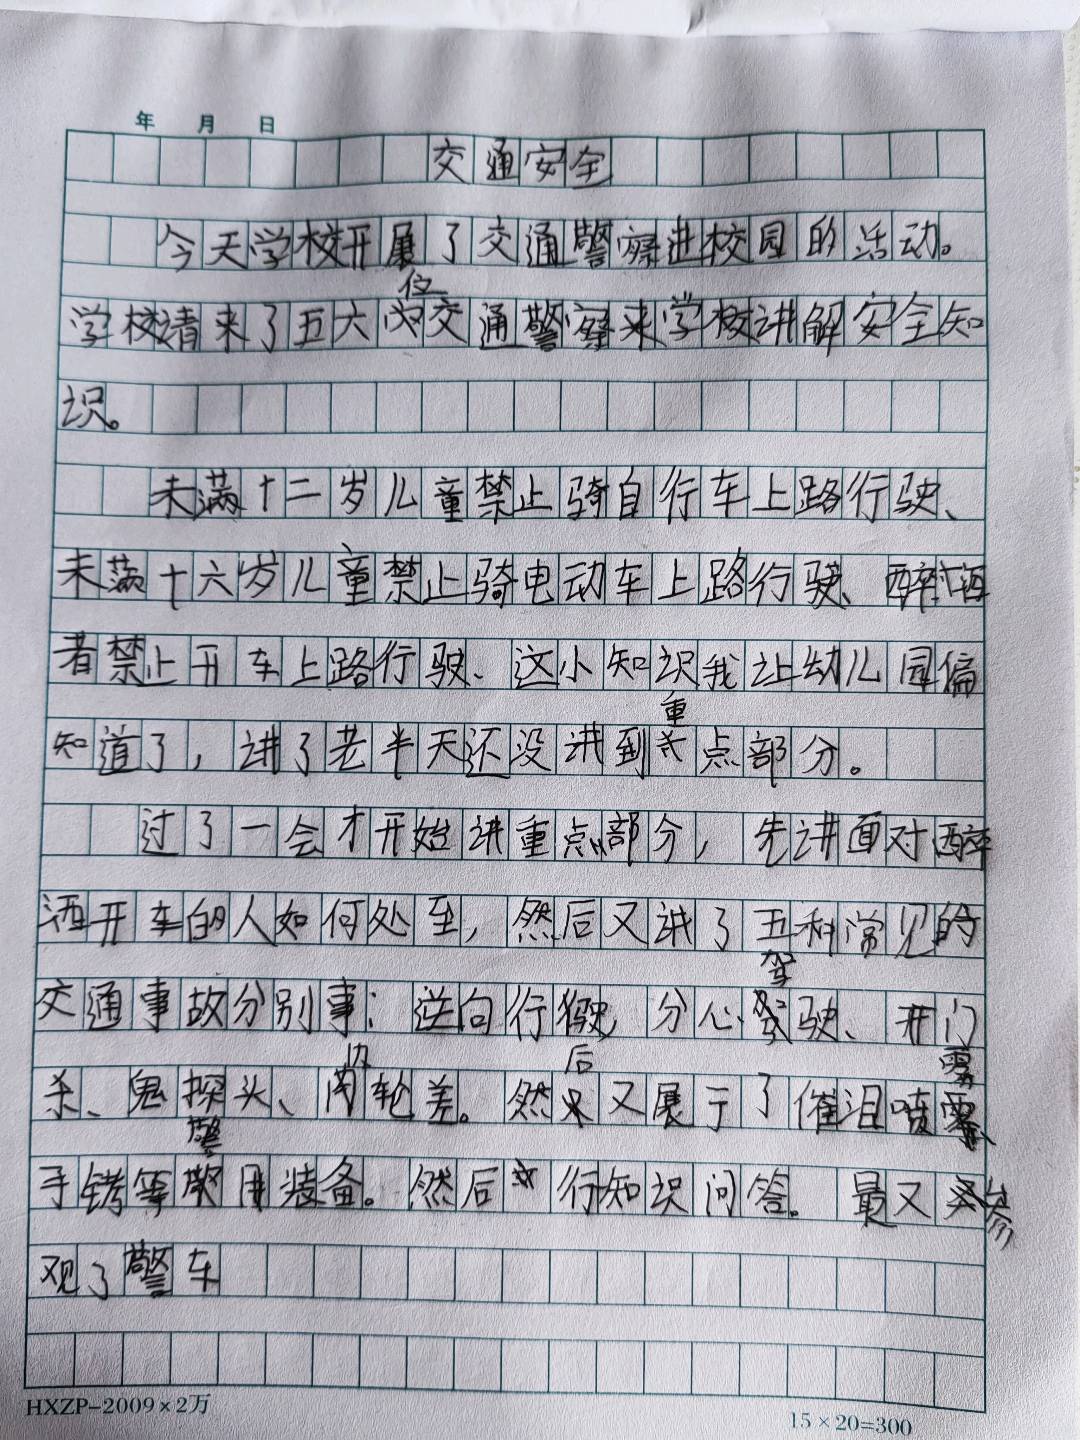 年 月 日
交通安全
今天学校开展了交通警察进校园的活动。
学校请来了五六位交通警察来学校讲解安全知
识。
未满十二岁儿童禁止骑自行车上路行驶、
未满十六岁儿童禁止骑电动车上路行驶、醉酒
者禁止开车上路行驶、这小知识我让幼儿园偏
知道了，讲了老半天还没讲到重点部分。
过了一会才开始讲重点部分，先讲面对醉
酒开车的人如何处至，然后又讲了五种常见的
交通事故分别事：逆向行驶，分心驾驶、开门
杀、鬼探头、内轮差。然后又展于了催泪喷雾
手铐等警用装备。然后行知识问答。最又参
观了警车
HXZP-2009×2万
15×20=300